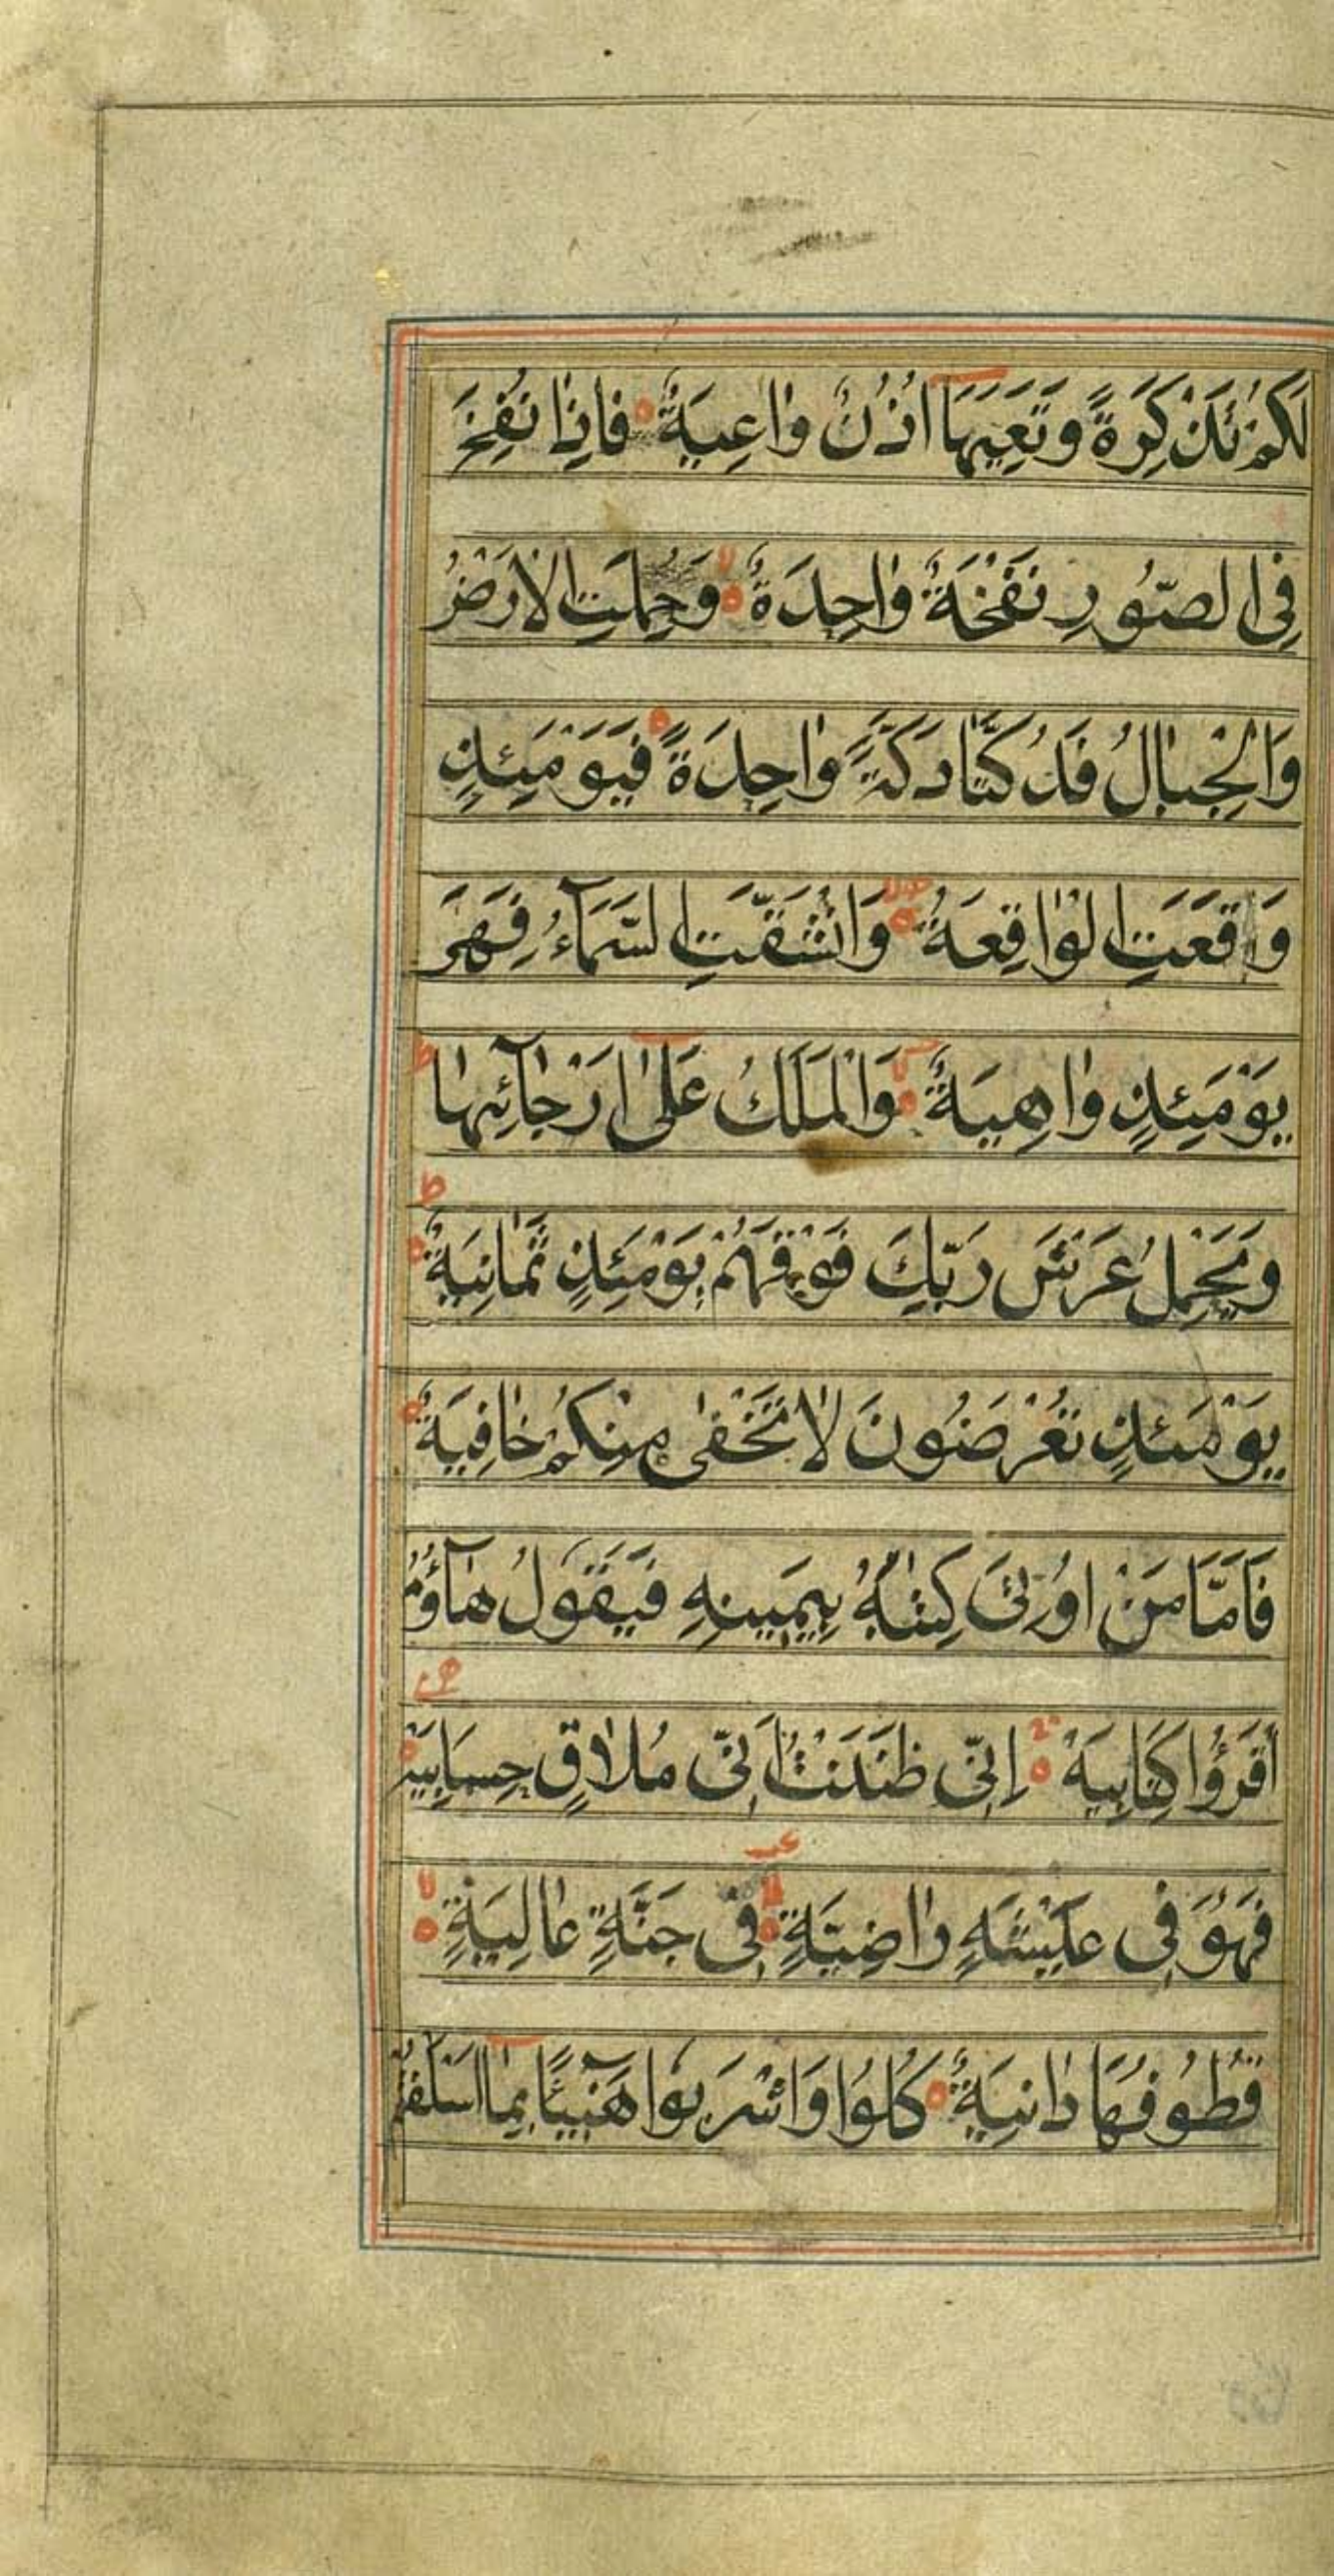 لَكُمْ تَذْكِرَةً وَتَعِيَهَا اُذُنٌ وٰاعِيَةٌ فَاِذٰا نُفِخَ
فِى الصُّورِ نَفْخَةٌ وٰاحِدَةٌ وَحُمِلَتِ الْاَرْضُ
وَالْجِبٰالُ فَدُكَّتٰا دَكَّةً وٰاحِدَةً فَيَوْمَئِذٍ
وَقَعَتِ الْوٰاقِعَةُ وَانْشَقَّتِ السَّمَآءُ فَهِىَ
يَوْمَئِذٍ وٰاهِيَةٌ وَالْمَلَكُ عَلٰى اَرْجٰآئِهٰا
وَيَحْمِلُ عَرْشَ رَبِّكَ فَوْقَهُمْ يَوْمَئِذٍ ثَمٰانِيَةٌ
يَوْمَئِذٍ تُعْرَضُونَ لٰا تَخْفٰى مِنْكُمْ خٰافِيَةٌ
فَاَمَّا مَنْ اُوتِىَ كِتٰابَهُ بِيَمِينِهِ فَيَقُولُ هٰآؤُمُ
اقْرَؤُا كِتَابِيَهْ اِنِّى ظَنَنْتُ اَنِّى مُلٰاقٍ حِسَابِيَهْ
فَهُوَ فِى عِيشَةٍ رٰاضِيَةٍ فِى جَنَّةٍ عٰالِيَةٍ
قُطُوفُهَا دٰانِيَةٌ كُلُوا وَاشْرَبُوا هَنِيٓئًا بِمٰا اَسْلَفْتُمْ